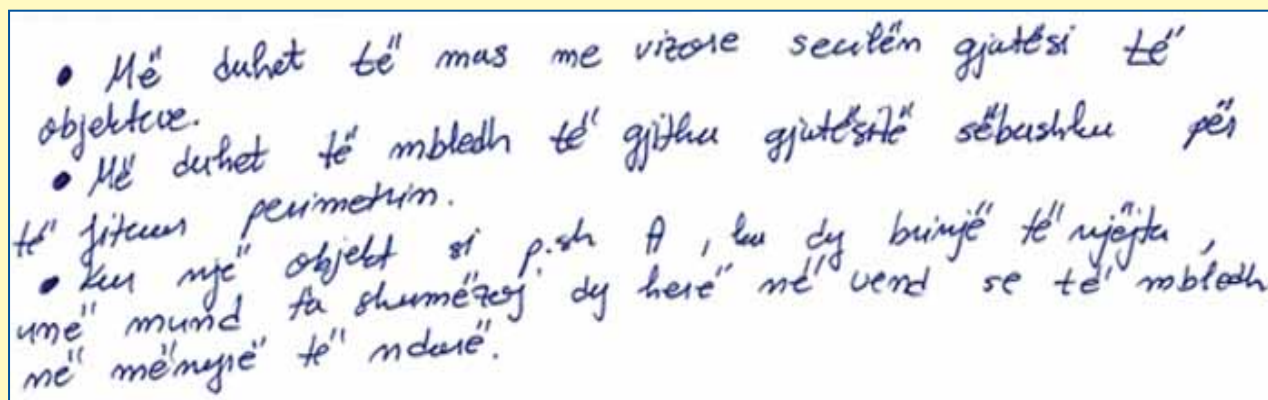 • Më duhet të mas me vizore secilën gjatësi të
objekteve.
• Më duhet të mbledh të gjitha gjatësitë sëbashku për
të fituar perimetrin.
• Kur një objekt si p.sh A, ka dy brinjë të njëjta,
unë mund ta shumëzoj dy herë në vend se të mbledh
në mënyrë të ndarë.